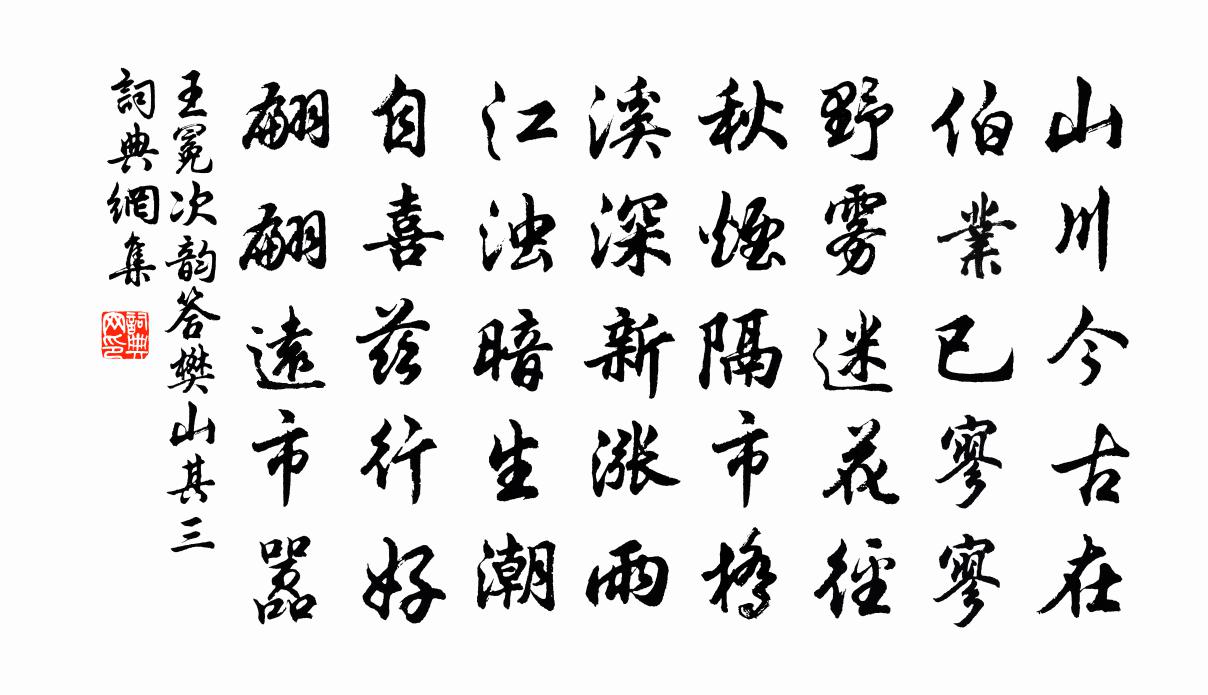 山川今古在
伯業已寥寥
野雾迷花徑
秋煙隔市橋
溪深新漲雨
江浊暗生潮
自喜兹行好
翩翩遠市嚣
王冕次韵答樊山其三
詞典網集
詞典网印